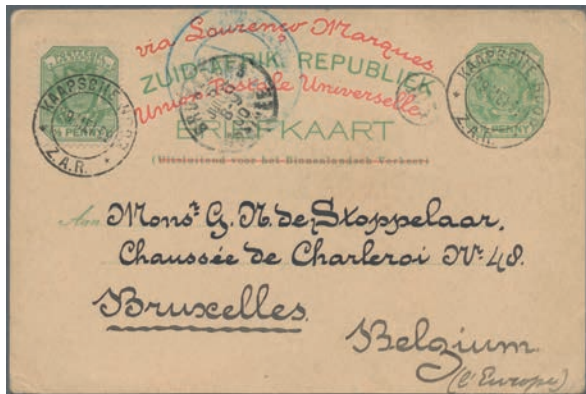 via Lourenço Marques
ZUID AFRIK REPUBLIEK
Union Postale Universelle
BRIEFKAART
(Uitsluitend voor het Binnenlandsch Verkeer)
½ PENNY
PENNY
KAAPSCHE
Z.A.R.
KAAPSCHE
Z.A.R.
Aan Monsr. G. N. de Stoppelaar.
Chaussée de Charleroi No. 48.
Bruxelles.
Belgium.
(l'Europe)